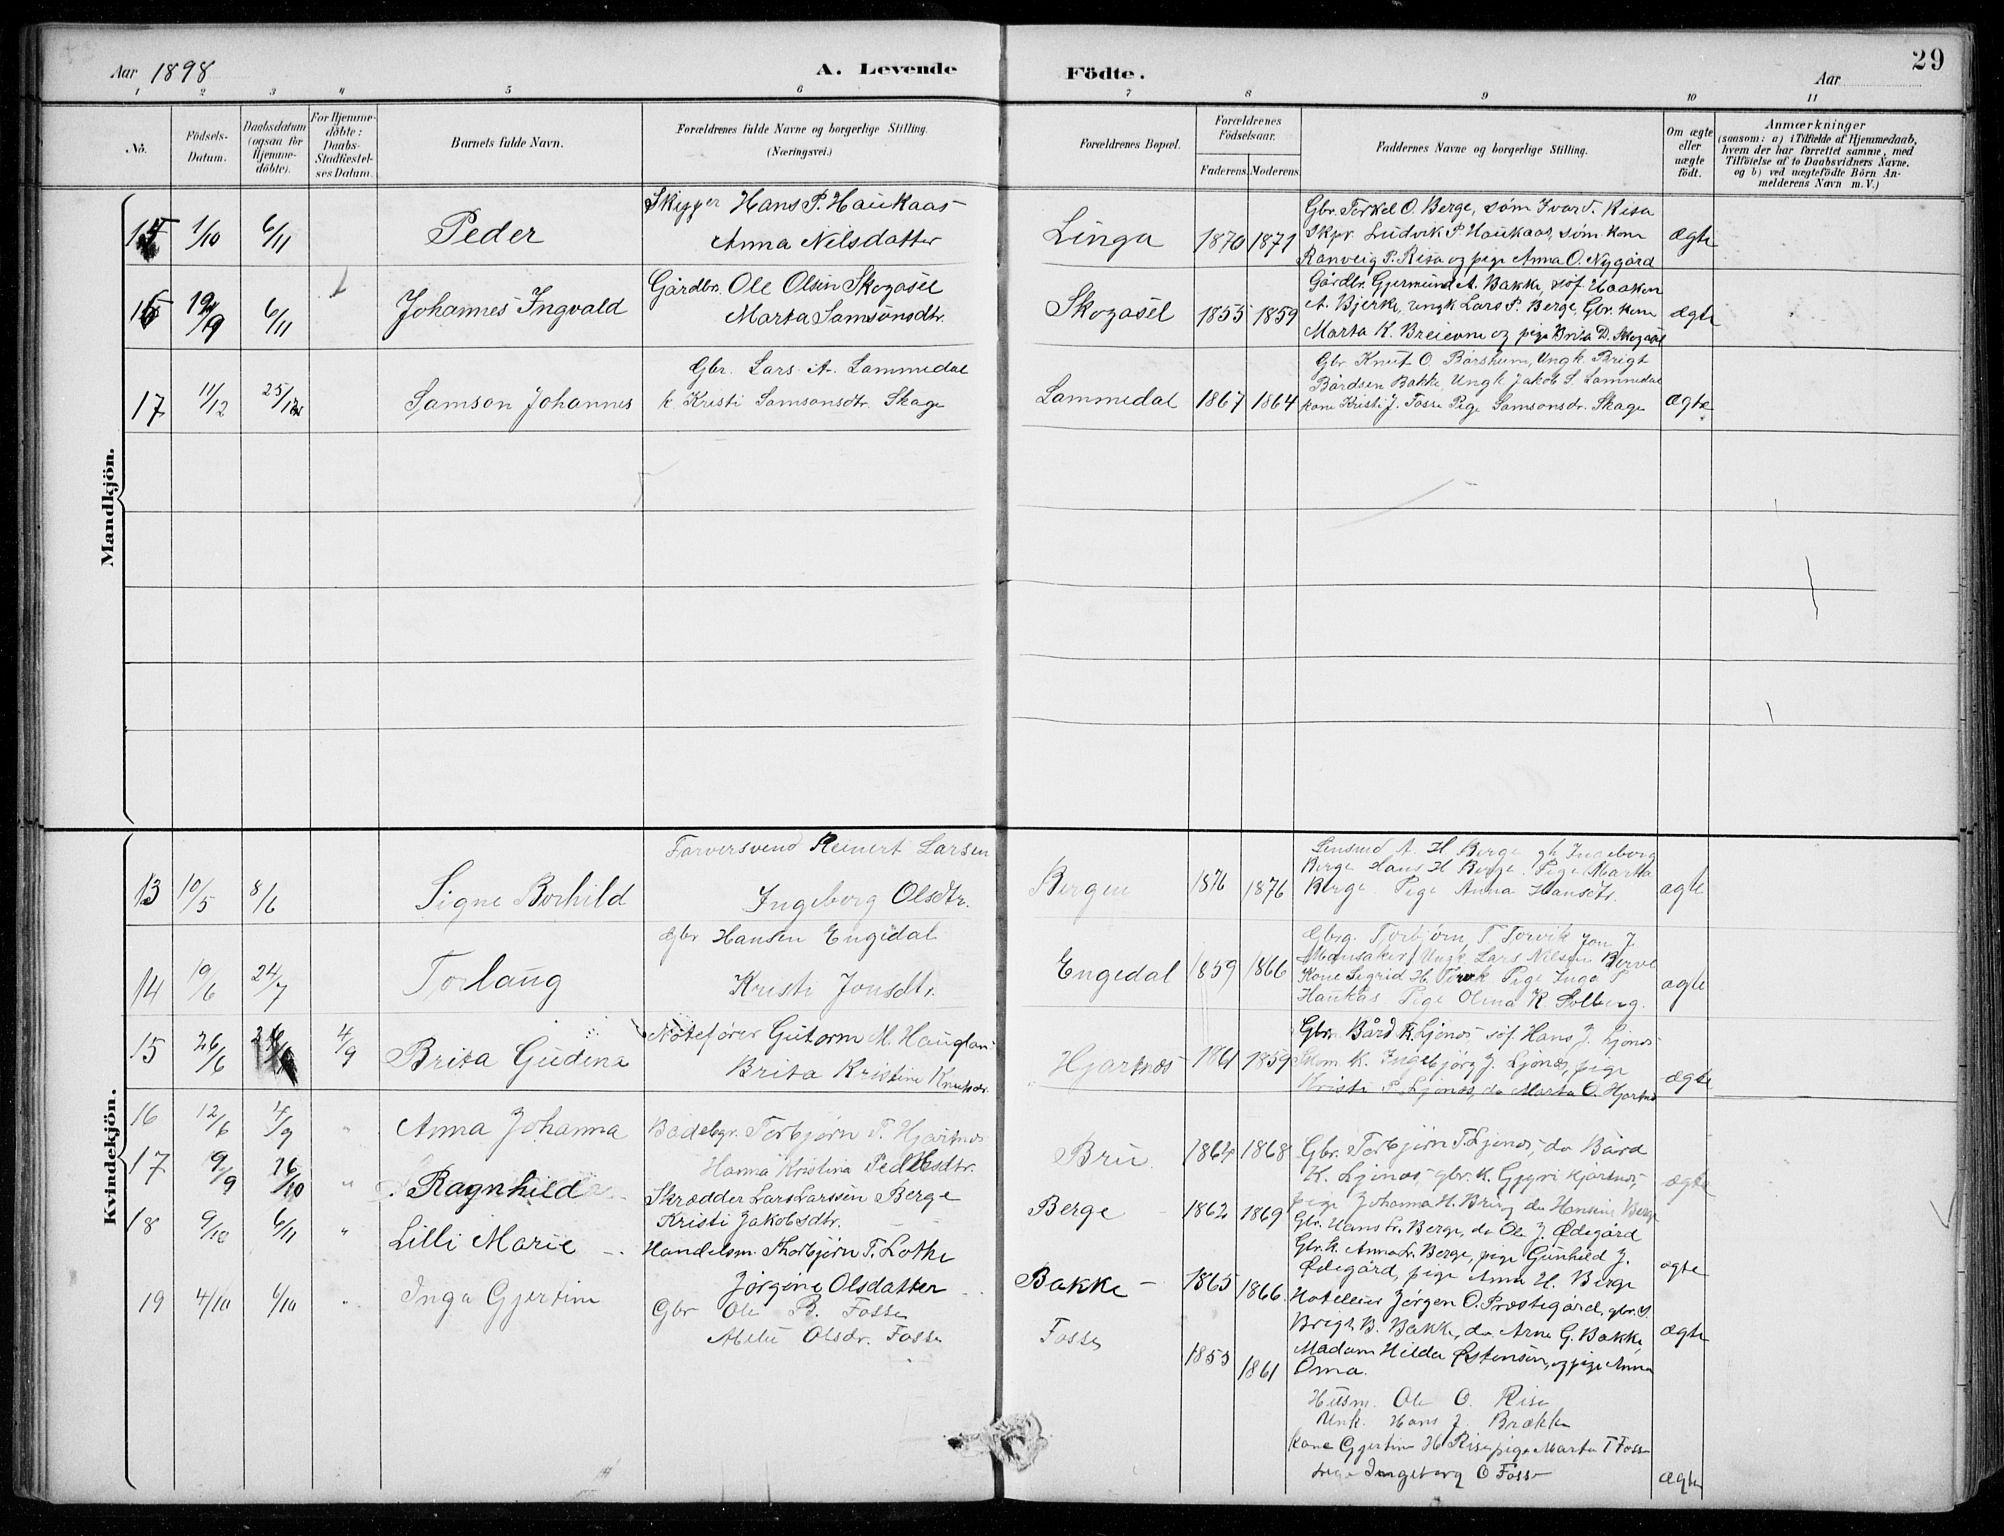 Aar 1898
A. Levende
Födte.
Aar
29
1 2 3 4 5 6 7 8 9 10 11
Nô.
Födsels-
Datum.
Daabsdatum
(ogsaa for
Hjemme-
döbte).
For Hjemme-
döbte:
Daabs-
Stadfæstel-
ses Datum.
Barnets fulde Navn.
Forældrenes fulde Navne og borgerlige Stilling.
(Næringsvei.)
Forældrenes Bopæl.
Forældrenes
Födselsaar.
Faderens. Moderens.
Faddernes Navne og borgerlige Stilling.
Om ægte
eller
uægte
födt.
Anmærkninger
(saasom: a) i Tilfælde af Hjemmedaab,
hvem der har forrettet samme, med
Tilföielse af to Daabsvidners Navne.
og b) ved uægtefödte Börn An-
melderens Navn m. V.)
Mandkjön.
15 1/10 6/11 Peder
Skipper Hans P. Haukaas
Anna Nilsdatter
Linga 1870 1871
Gbr. Torkel O. Berge, søm Ivar T. Risa
Skpr. Ludvik P. Haukaas, søm. kone
Ranveig P. Risa og pige Anna O. Nygård
Ægte
16 19/9 6/11 Johannes Ingvald
Gårdbr. Ole Olsen Skogasel
Marta Samsonsdtr.
Skogasel 1855 1859
Gårdbr. Gjermund A. Bakke, søf Haaken
A. Bjerke, ungk Lars P. Berge, Gbr. kone
Marta K. Breievne og pige Brita D. Skogasel
Ægte
17 11/12 25/12 Samson Johannes
Gbr. Lars A. Lammedal
k. Kristi Samsonsdtr. Skage
Lammedal 1867 1864
Gbr Knut O Børsheim, Ungk. Brigt
Bårdsen Bakke, Ungk Jakob S. Lammedal
kone Kristi J. Fosse Pige Samsonsdr. Skage
Ægte
Kvindekjön.
13 10/5 8/6 Signe Borhild
Farversvend Reinert Larsen
Ingeborg Olsdtr.
Bergen 1876 1876
A. H Berge gk Ingeborg
Berge Hans H Berge. Pige Marta
Berge. Pige Anna Hansdtr.
ægte
14 19/6 24/7 Torlaug
Gbr Hansen Engedal
Kristi Jonsdtr.
Engedal 1859 1866
Gbrg. Torbjørn T Torvik Jon J.
Mansaker, Ungk Lars Nilsen Berve
Kone Sigrid H. Torvik Pige Inga P
Haukås Pige Olina K. Solberg.
ægte
15 26/6 4/9 Brita Gudena
Notefører Gutorm M. Haugland
Brita Kristine Knutsdr.
Hjartnæs 1861 1859
Gbr. Bård K. Ljønæs, søf. Hans J. Ljones
Skom. K. Ingebjørg J. Ljones, pige
Kristi P. Ljønæs, do Marta O. Hjartnæs
ægte
16 12/6 4/9 " Anna Johanna
Bødebgr. Torbjørn T. Hjartnæs
Hanna Kristina Pedersdtr.
Bru 1864 1868
Gbr. Torbjørn T. Ljones, do Bård
K. Ljønes, gbr. k. Gyyri Hjartnes,
pige Johanna H. Bru, do Hansine Berge
ægte
17 9/9 16/10 " Ragnhild
Skrædder Lars Larssen Berge
Kristi Jakobsdtr.
Berge 1862 1869
Gbr. Hans L. Berge, do Ole J. Ødegård
Gbr. k. Anna L. Berge, pige Gunhild J.
Ødegård, pige Anna H. Berge
ægte
18 9/10 6/11 " Lilli Marie
Handelsm. Thorbjørn T. Lothe
Jørgine Olsdatter
Bakke 1865 1866.
Hotelleier Jørgen O. Præstegård, gbr. s.
Brigt B. Bakke, do Arne G. Bakke,
Madam Hilda Østensen, og pige Anna
Oma.
Ægte
19 4/10 6/10 " Inga Gjertine
Gbr Ole B. Fosse
Abelu Olsdr. Fosse
Fosse 1855 1861
Husm. Ole O. Risa
Unk. Hans J. Brække
kone Gjertine H Risa pige Marta T Fosse
pige Ingeborg O Fosse
ægte